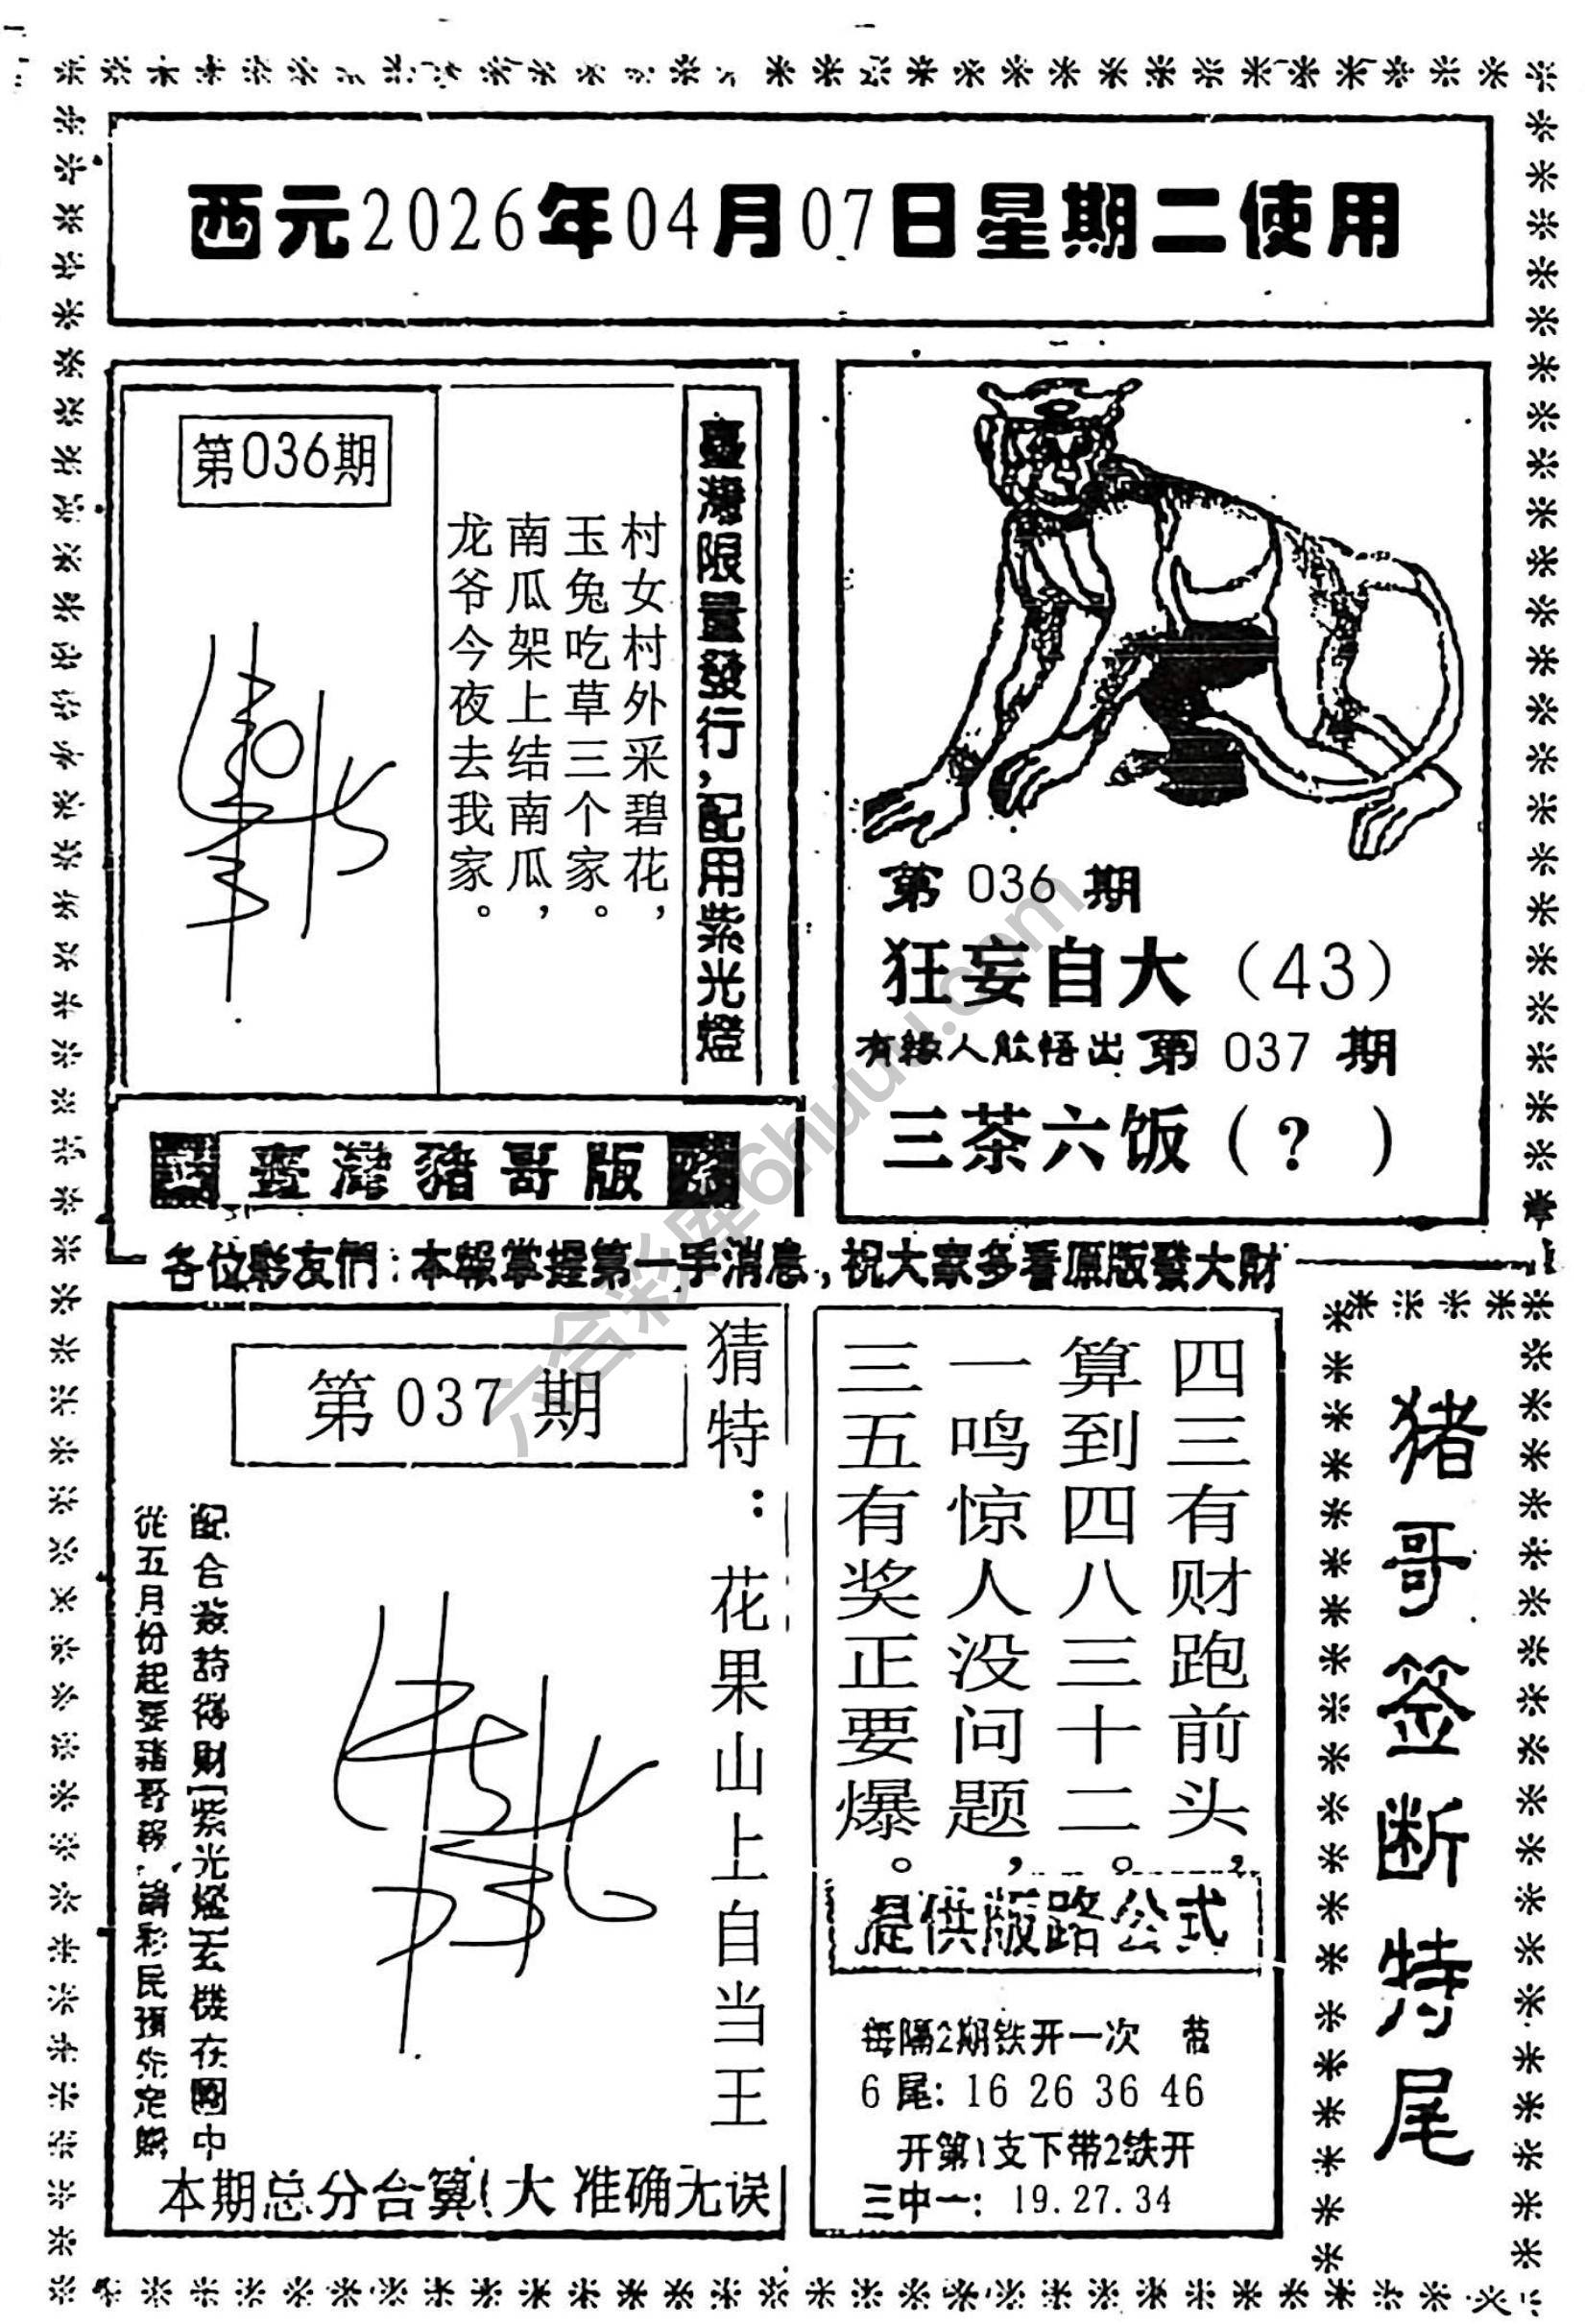 西元2026年04月07日星期二使用
臺灣限量發行，配用紫光燈
村女村外采碧花，
玉兔吃草三个家。
南瓜架上结南瓜，
龙爷今夜去我家。
第036期
第036期
狂妄自大（43）
有緣人能悟出第037期
三茶六饭（?）
臺灣豬哥版
各位彩友們：本報掌握第一手消息，祝大家多看原版發大財
猜特：花果山上自当王
第037期
配合散詩得財[紫光燈]玄機在圖中
從五月份起要豬哥報，請彩民預先定購
本期总分合算!大 准确无误
四三有财跑前头，
算到四八三十二。
一鸣惊人没问题，
三五有奖正要爆。
提供版路公式
每隔2期铁开一次 带
6尾：16 26 36 46
开第1支下带2铁开
三中一：19.27.34
猪哥签断特尾
六合彩库6huuu.com